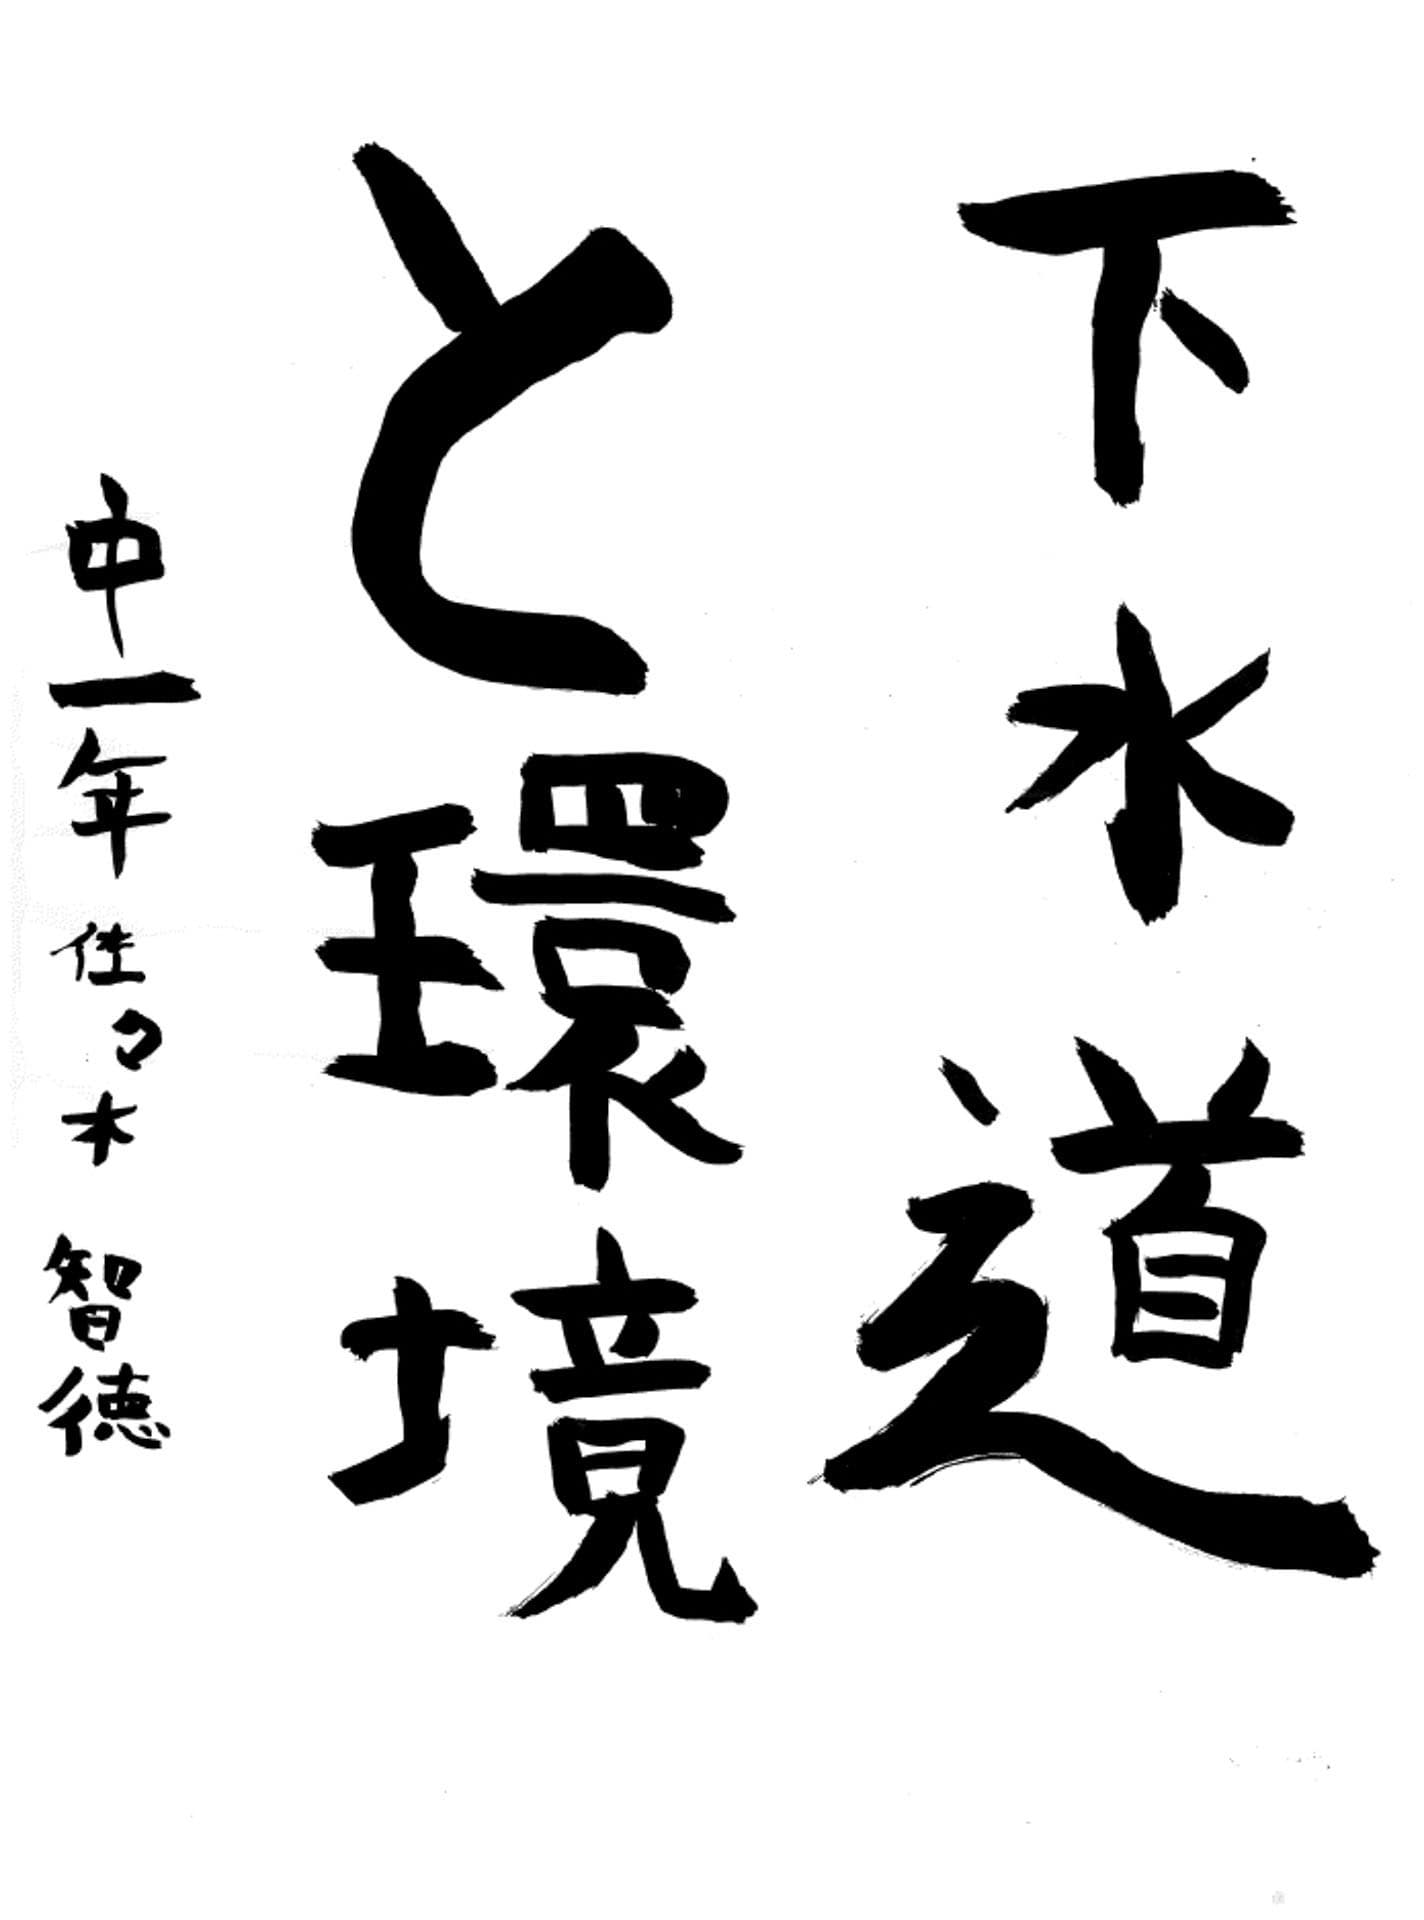 下水道
と環境
中一年 佐々木 智徳